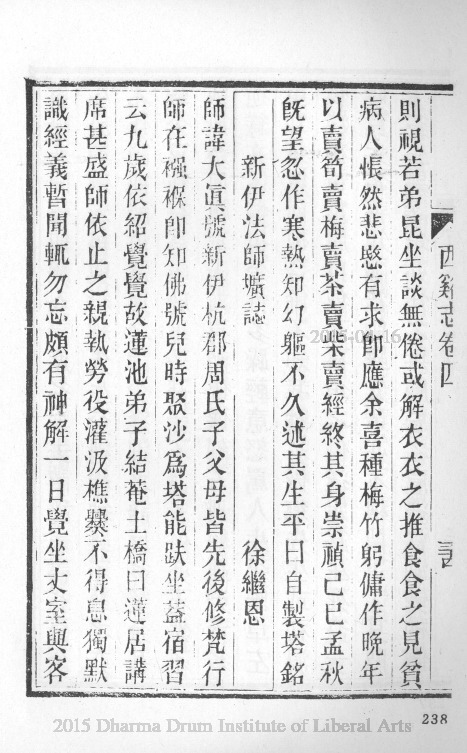 則視若弟昆坐談無倦或解衣衣之推食食之見貧
病人悵然悲愍有求卽應余喜種梅竹躬傭作晚年
以賣筍賣梅賣茶賣柴賣經終其身崇禎己巳孟秋
旣望忽作寒熱知幻軀不久述其生平曰自製塔銘
新伊法師壙誌 徐繼恩
師諱大眞號新伊杭郡周氏子父母皆先後修梵行
師在襁褓卽知佛號兒時聚沙爲塔能趺坐蓋宿習
云九歲依紹覺覺故蓮池弟子結菴土橋曰蓮居講
席甚盛師依止之親執勞役灌汲樵爨不得息獨默
識經義暫聞輒勿忘頗有神解一日覺坐丈室與客
西谿志卷四
238
2015 Dharma Drum Institute of Liberal Arts